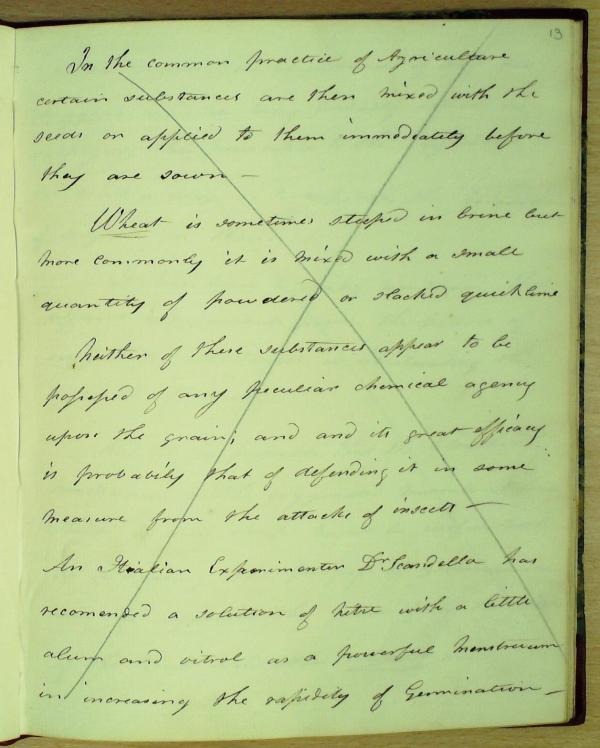 13
In the common practice of Agriculture
certain substances are then mixed with the
seeds or applied to them immediately before
they are sown —
Wheat is sometimes steeped in brine but
more commonly it is mixed with a small
quantity of powdered or slacked quicklime
Neither of these substances appear to be
possessed of any peculiar chemical agency
upon the grain; and and its great efficacy
is probabily that of defending it in some
measure from the attacks of insects —
An Italian Experimenter Dr Scandella has
recomended a solution of nitre with a little
alum and vitrol as a powerful menstruum
in increasing the rapidity of Germination —